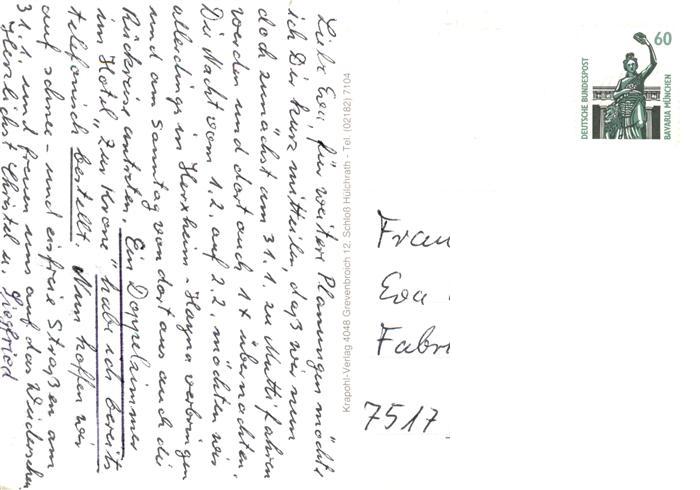 Liebe Eva, für weitere Planungen möchte
ich Dir kurz mitteilen, daß wir nun
doch zunächst am 31.1. zu Mutti fahren
werden und dort auch 1x übernachten.
Die Nacht vom 1.2. auf 2.2. möchten wir
allerdings in Herxheim-Hayna verbringen
und am Sonntag von dort aus auch die
Rückreise antreten. Ein Doppelzimmer
im Hotel "Zur Krone" habe ich bereits
telefonisch bestellt. Nun hoffen wir
auf schnee- und eisfreie Straßen am
31.1. und freuen uns auf das Wiedersehen
Herzlichst Christel u. Siegfried
Krapohl-Verlag 4048 Grevenbroich 12, Schloß Hülchrath - Tel. (02182) 7104
60
DEUTSCHE BUNDESPOST
BAVARIA MÜNCHEN
Frau
Eva
Fabri
7517